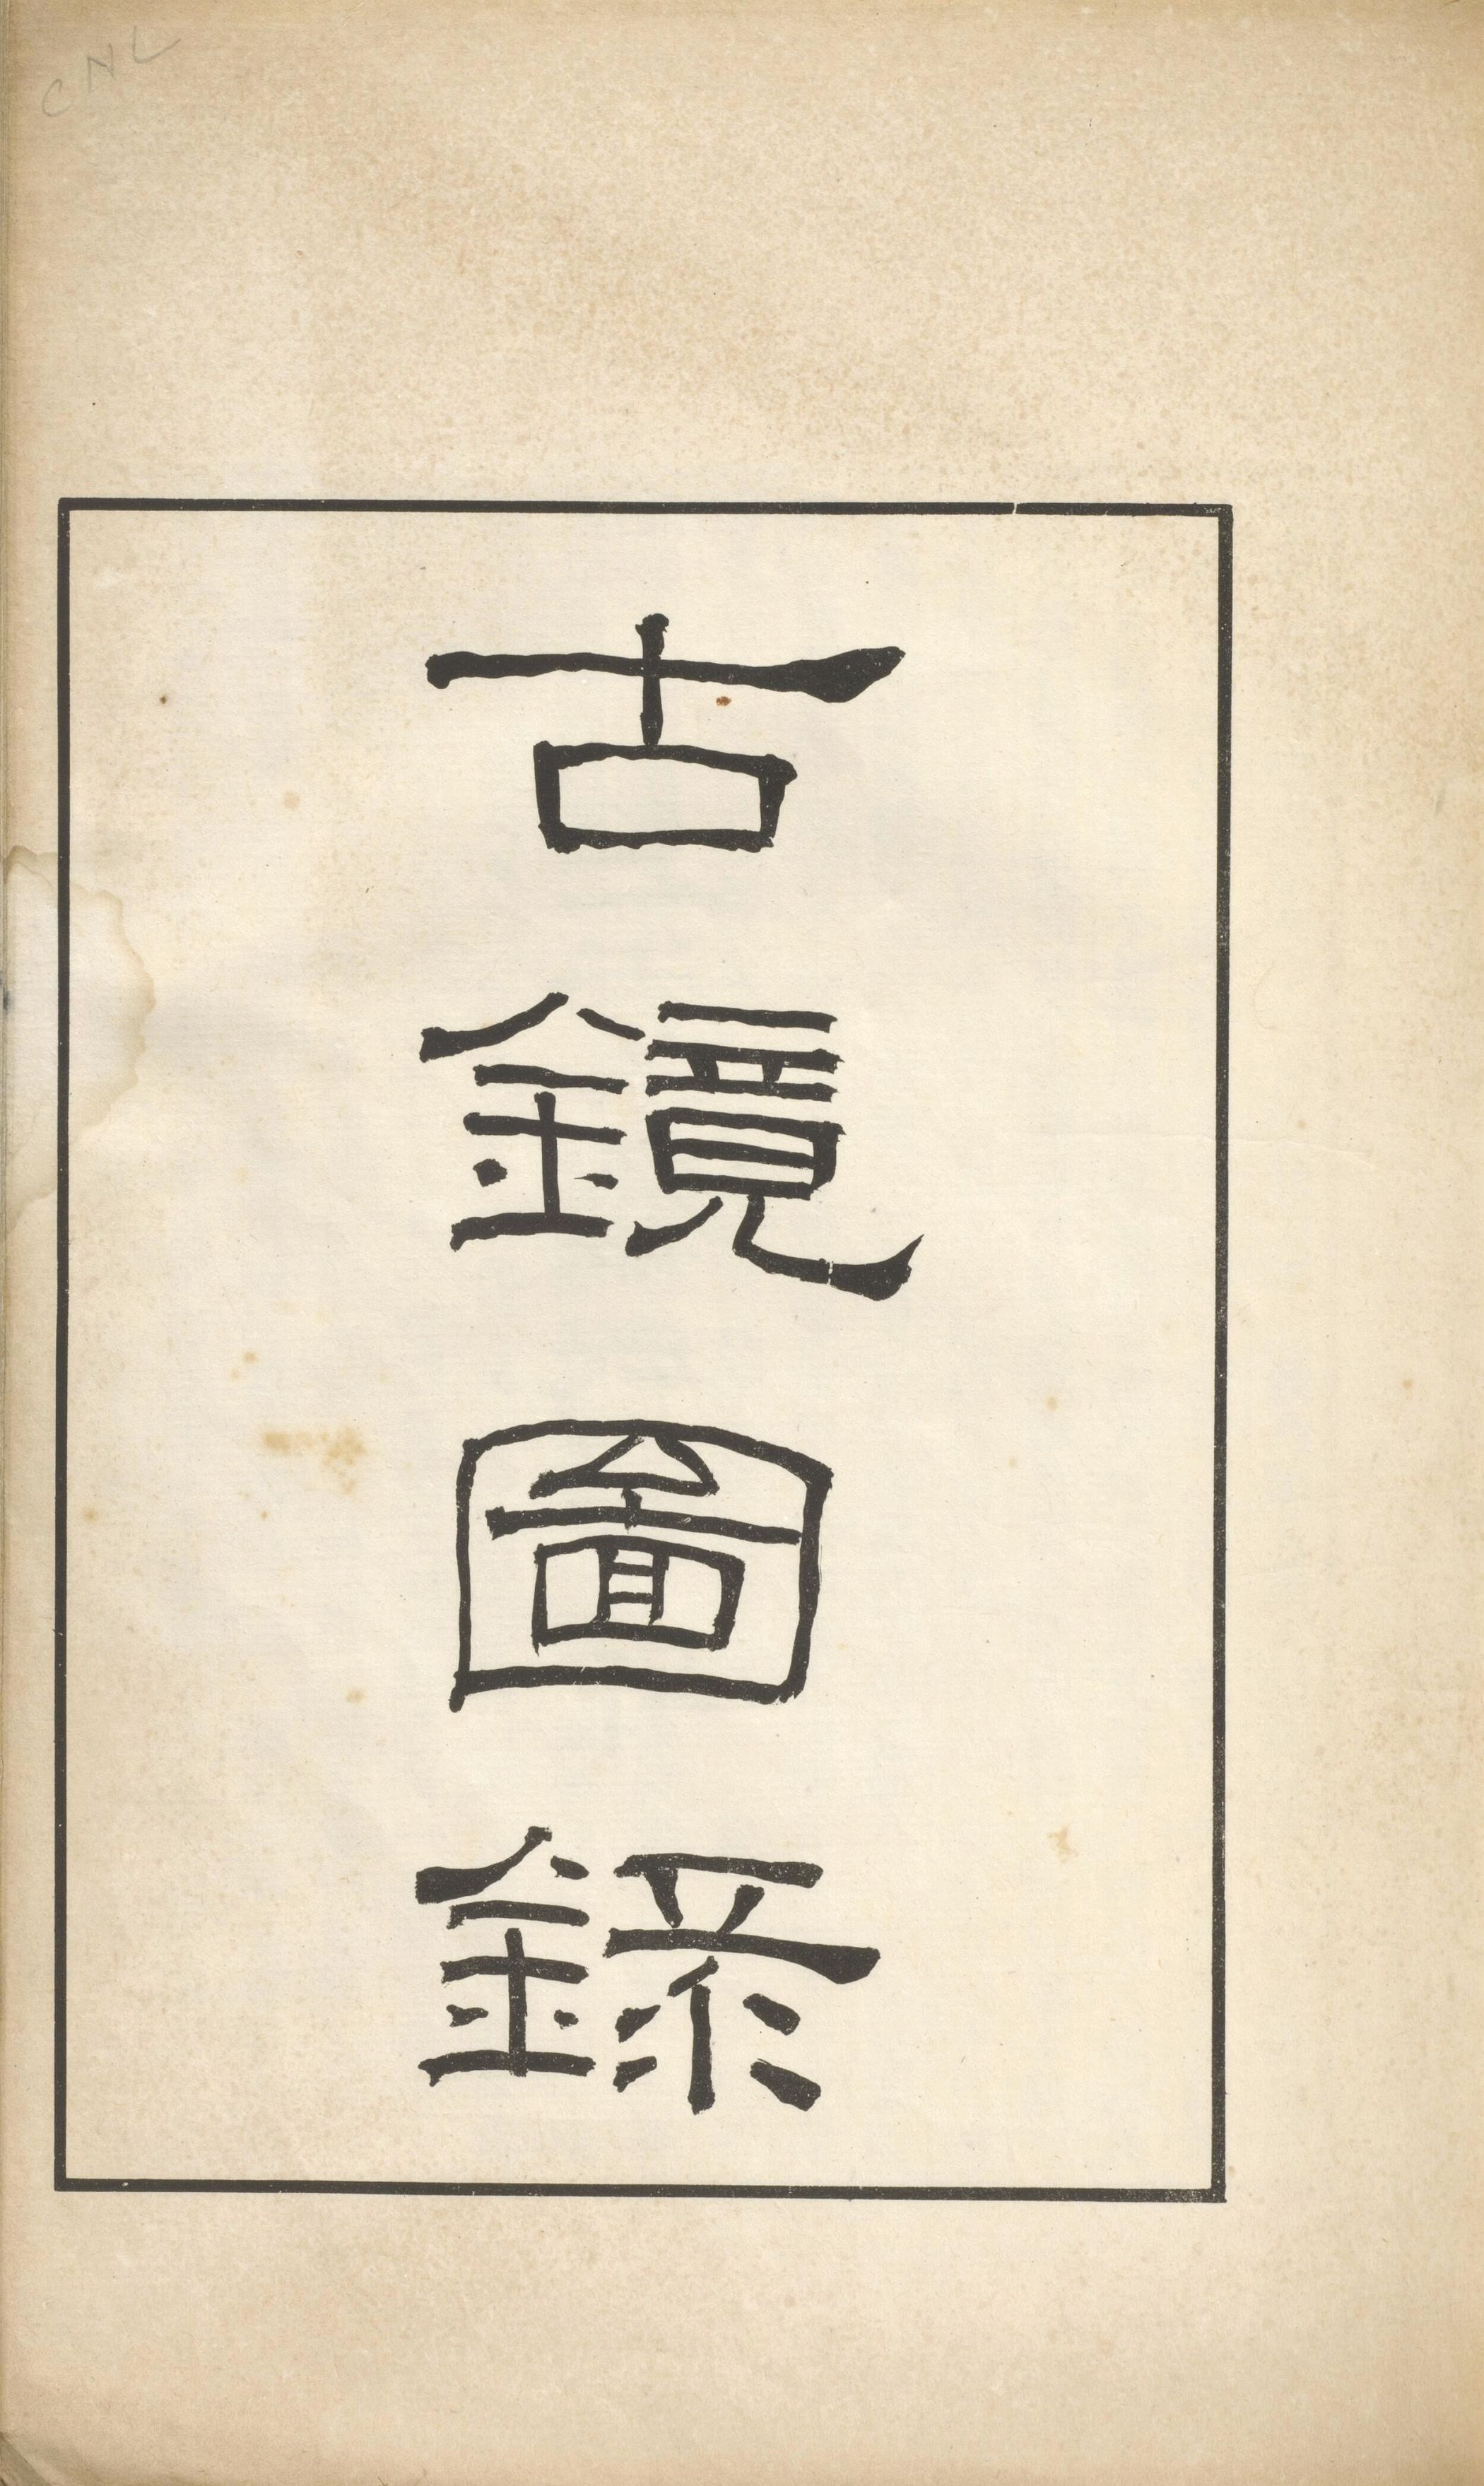 CNL
古鏡圖錄